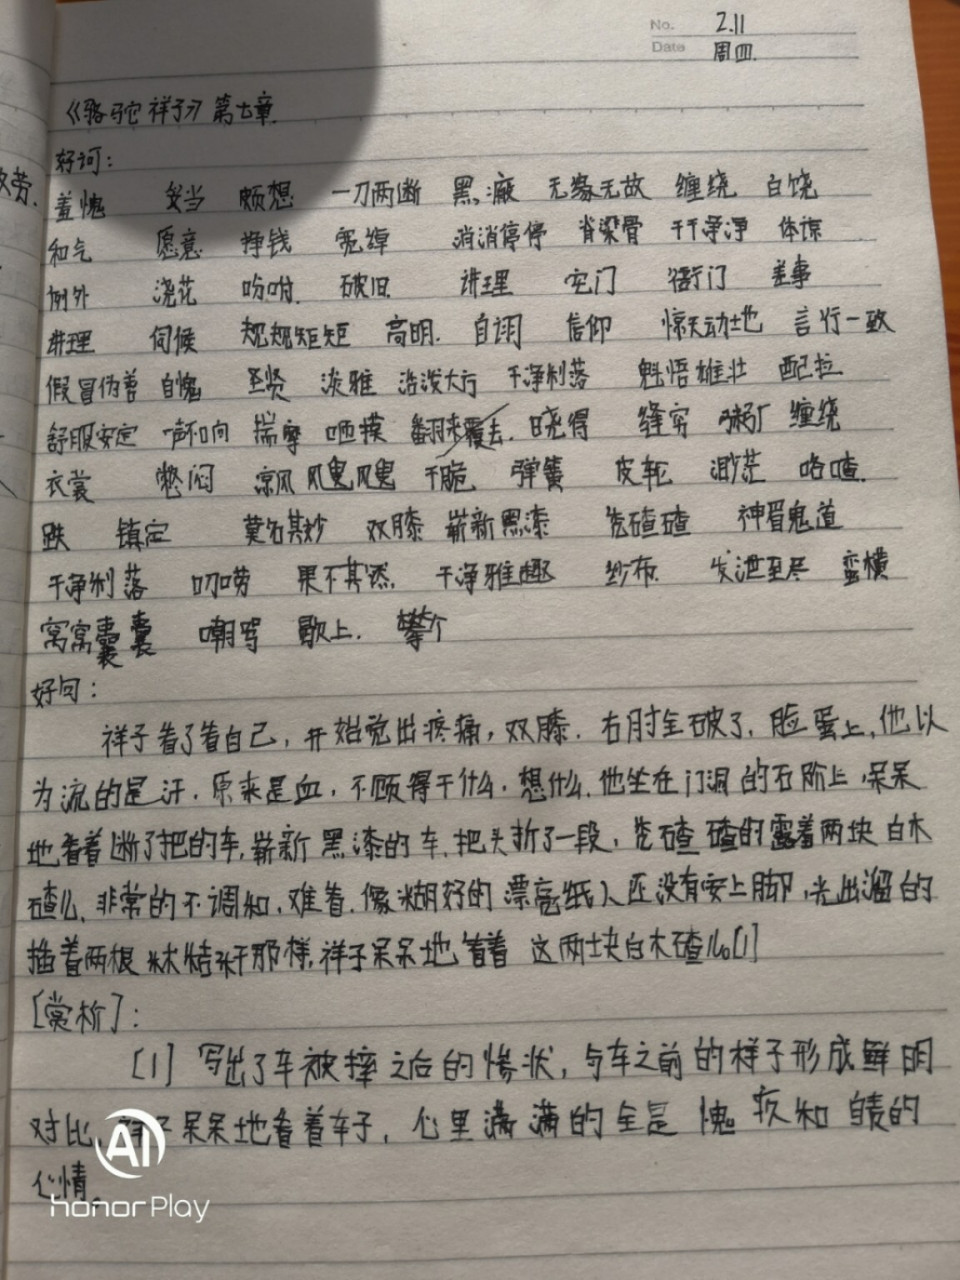 No. 2.11
Date 周四.
《骆驼祥子》第七章.
好词:
羞愧 妥当 颇想 一刀两断 黑 无缘无故 缠绕 白饶
和气 愿意 挣钱 宽绰 消消停停 脊梁骨 干干净净 体谅
例外 浇花 吩咐. 破旧. 讲理 宅门 衙门 差事
讲理 伺候 规规矩矩 高明. 自诩 信仰 惊天动地 言行一致
假冒伪善 自愧 圣贤 淡雅 活泼大方 干净利落 魁梧雄壮 配拉
舒服安定 一声不响 揣摩 咂摸 翻来覆去. 晓得 缝穷 粥厂 缠绕
衣裳 憋闷 凉风飕飕 干脆 弹簧 皮轮 渺茫 咯喳.
跌 镇定 莫名其妙 双膝 崭新黑漆 秃碴碴 神眉鬼道
干净利落 叨唠 果不其然. 干净雅趣 纱布. 发泄至尽 蛮横
窝窝囊囊 嘲骂 歇上. 攀个
好句:
祥子看了看自己,开始觉出疼痛,双膝.右肘全破了.脸蛋上,他以
为流的是汗.原来是血,不顾得干什么.想什么.他坐在门洞的石阶上,呆呆
地看着断了把的车,崭新黑漆的车.把头折了一段,秃碴碴的露着两块白木
碴儿.非常的不调和.难看.像糊好的漂亮纸人还没有安上脚,光出溜的
插着两根秫秸杆那样,祥子呆呆地看着这两块白木碴儿。[1]
[赏析]:
[1]写出了车被摔之后的惨状,与车之前的样子形成鲜明
对比,祥子呆呆地看着车子,心里满满的全是愧疚和 的
心情.
AI
honor Play